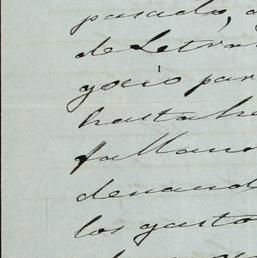 pasado, a
de Letra
gocio par
hasta h
fallano
demand
los gasto